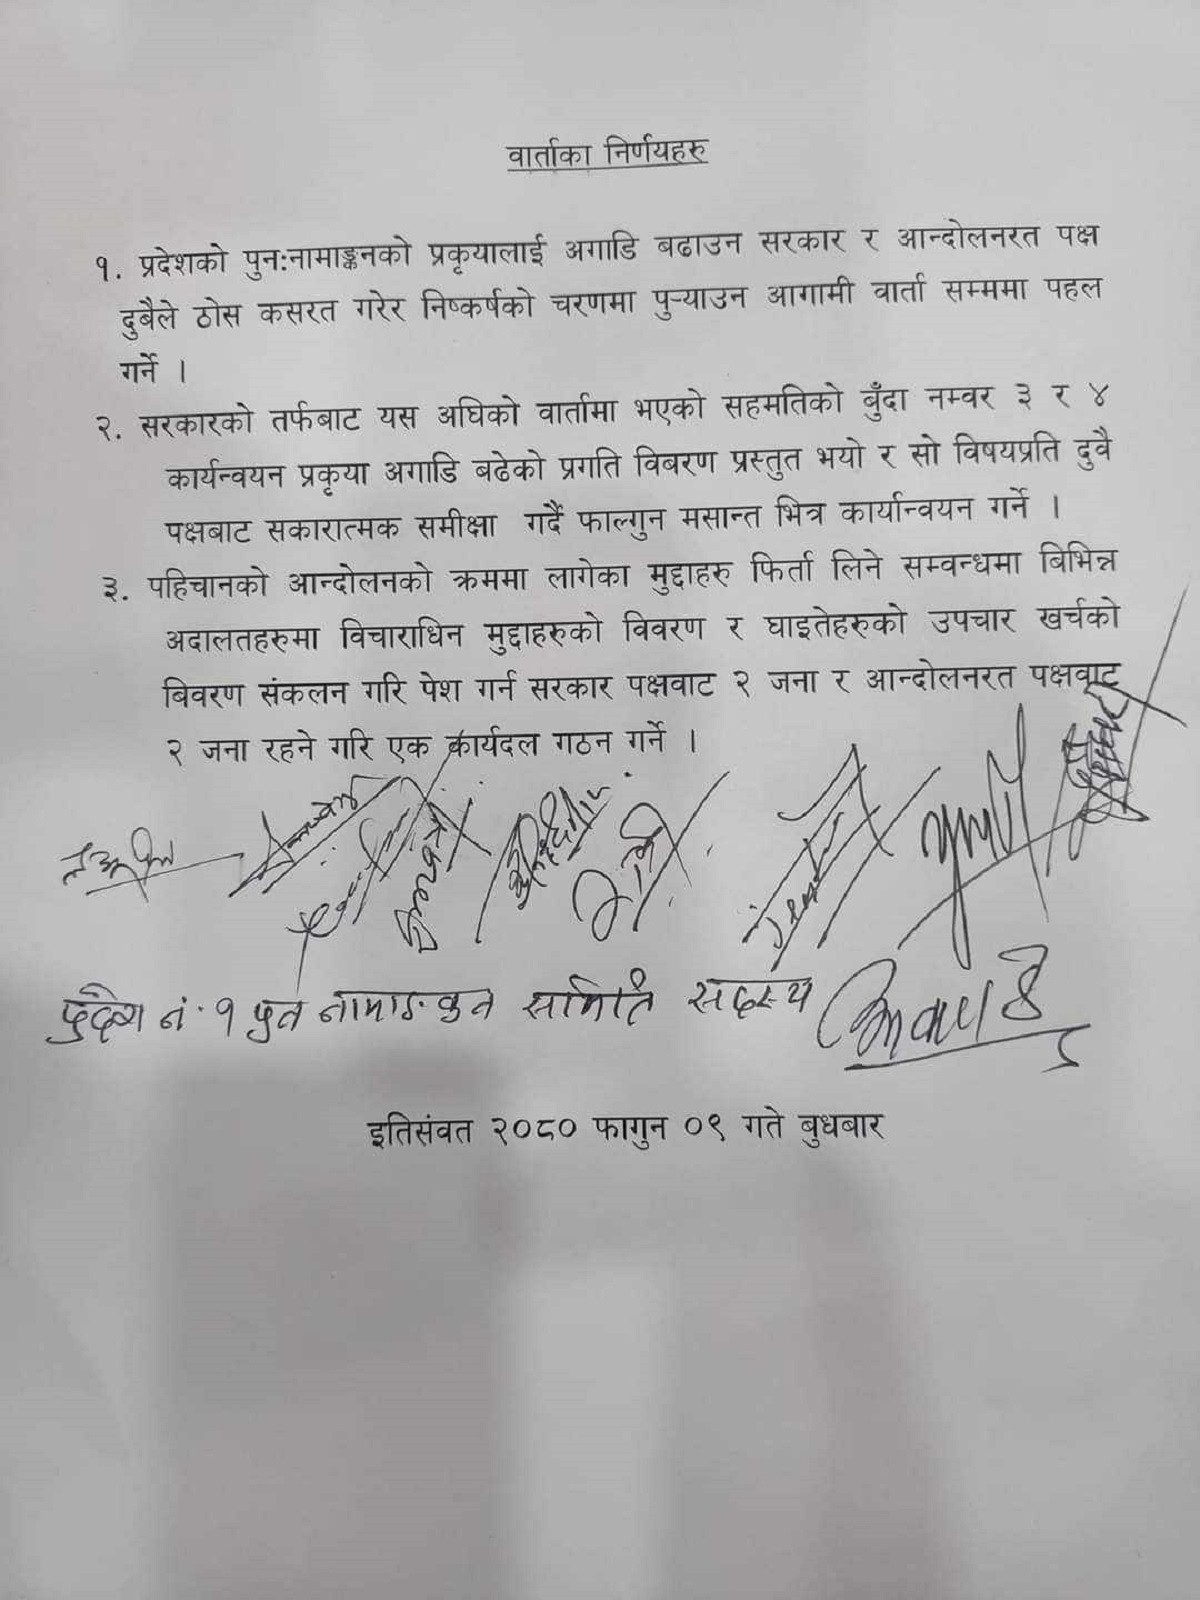 वार्ताका निर्णयहरु
१. प्रदेशको पुन:नामाङ्कनको प्रकृयालाई अगाडि बढाउन सरकार र आन्दोलनरत पक्ष
दुबैले ठोस कसरत गरेर निष्कर्षको चरणमा पुऱ्याउन आगामी वार्ता सम्ममा पहल
गर्ने ।
२. सरकारको तर्फबाट यस अघिको वार्तामा भएको सहमतिको बुँदा नम्वर ३ र ४
कार्यन्वयन प्रकृया अगाडि बढेको प्रगति विबरण प्रस्तुत भयो र सो विषयप्रति दुवै
पक्षबाट सकारात्मक समीक्षा गर्दै फाल्गुन मसान्त भित्र कार्यान्वयन गर्ने ।
३. पहिचानको आन्दोलनको क्रममा लागेका मुद्दाहरु फिर्ता लिने सम्वन्धमा बिभिन्न
अदालतहरुमा विचाराधिन मुद्दाहरुको विवरण र घाइतेहरुको उपचार खर्चको
बिवरण संकलन गरि पेश गर्न सरकार पक्षवाट २ जना र आन्दोलनरत पक्षवाट
२ जना रहने गरि एक कार्यदल गठन गर्ने ।
प्रदेश नं. १ पुन नामाङकन समिति सदस्य
इतिसंवत २०८० फागुन ०९ गते बुधबार